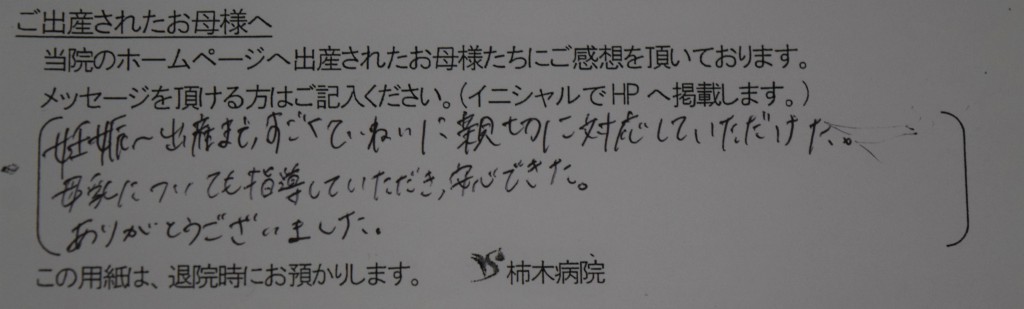 ご出産されたお母様へ
当院のホームページへ出産されたお母様たちにご感想を頂いております。
メッセージを頂ける方はご記入ください。(イニシャルでHPへ掲載します。)
妊娠〜出産まで、すごくていねいに親切に対応していただけた。
母乳についても指導していただき、安心できた。
ありがとうございました。
この用紙は、退院時にお預かりします。 柿木病院